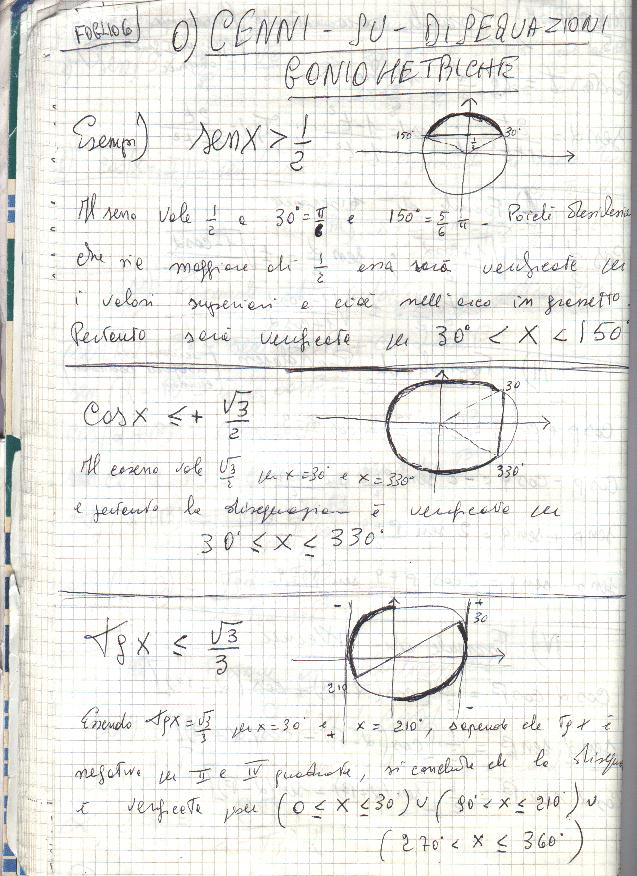 FOGLIO 6
0) CENNI - SU - DISEQUAZIONI
GONIOMETRICHE
Esempi) senx > 1/2
150° 30°
1/2
Il seno vale 1/2 a 30° = π/6 e 150° = 5/6 π. Poiché si desidera
che sia maggiore di 1/2 essa sarà verificata per
i valori superiori e cioè nell'arco in grassetto.
Pertanto sarà verificata per 30° < X < 150°
Cosx ≤ + √3/2
30°
330°
Il coseno vale √3/2 per x = 30° e x = 330°
e pertanto la disequazione è verificata per
30° ≤ X ≤ 330°
Tgx ≤ √3/3
- +
30
210
-
+
Essendo Tgx = √3/3 per x = 30° e x = 210°, sapendo che Tgx è
negativa per II e IV quadrante, si conclude che la diseq
è verificata per (0 ≤ X ≤ 30°) ∪ (90° < X ≤ 210°) ∪
(270° < X ≤ 360°)